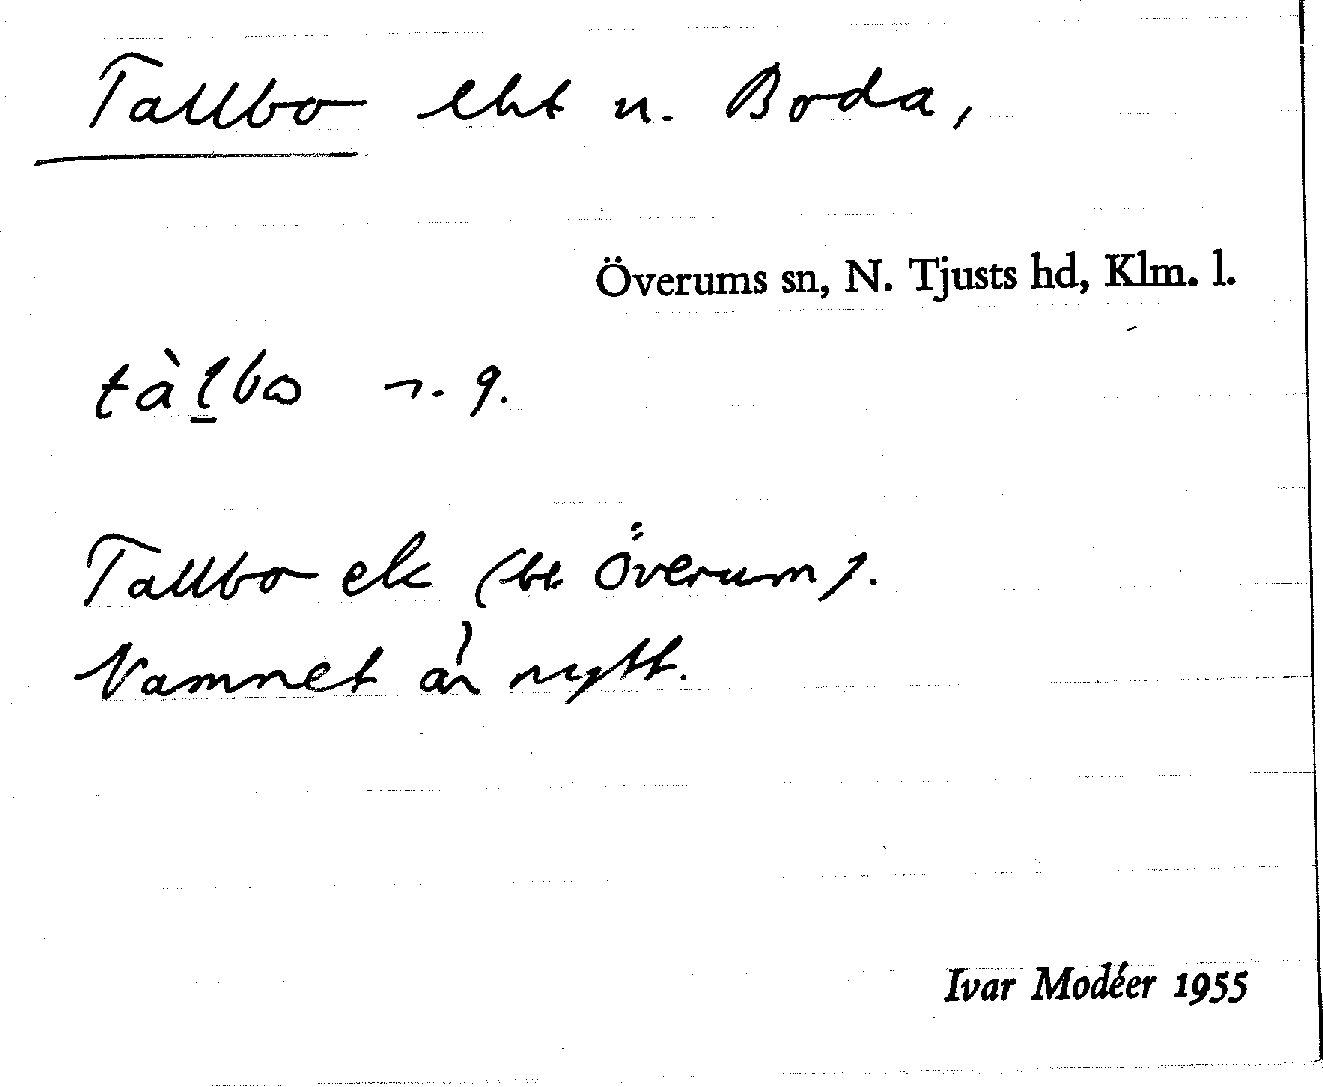 Tallbo lht u. Boda,
Överums sn, N. Tjusts hd, Klm. l.
tàlbo
Tallbo ek (bl Överum).
Namnet är nytt.
Ivar Modéer 1955